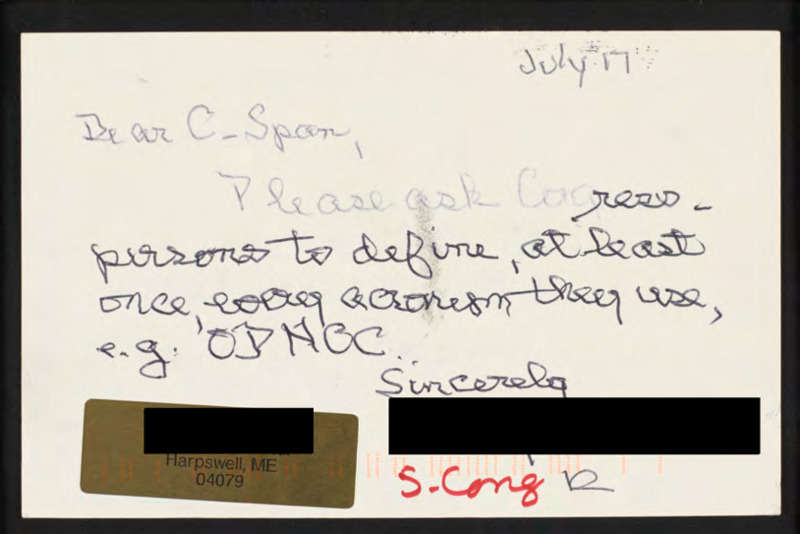 July 17
Dear C-Span,
Please ask Congress-
persons to define, at least
once, every acronym they use,
e.g.
Sincerely
Harpswell, ME
04079
S-Cong